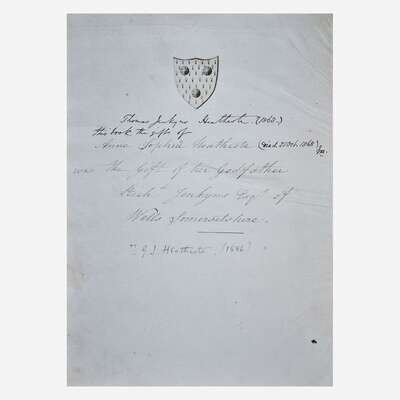 Thomas Jenkyns Heathcote (1868.)
this book the gift of
Anne Sophia Heathcote (died. 21 Oct. 1868)
was the Gift of her Godfather
Richd. Jenkyns Esqr. of
Wells Somersetshire.
J. Heathcote.